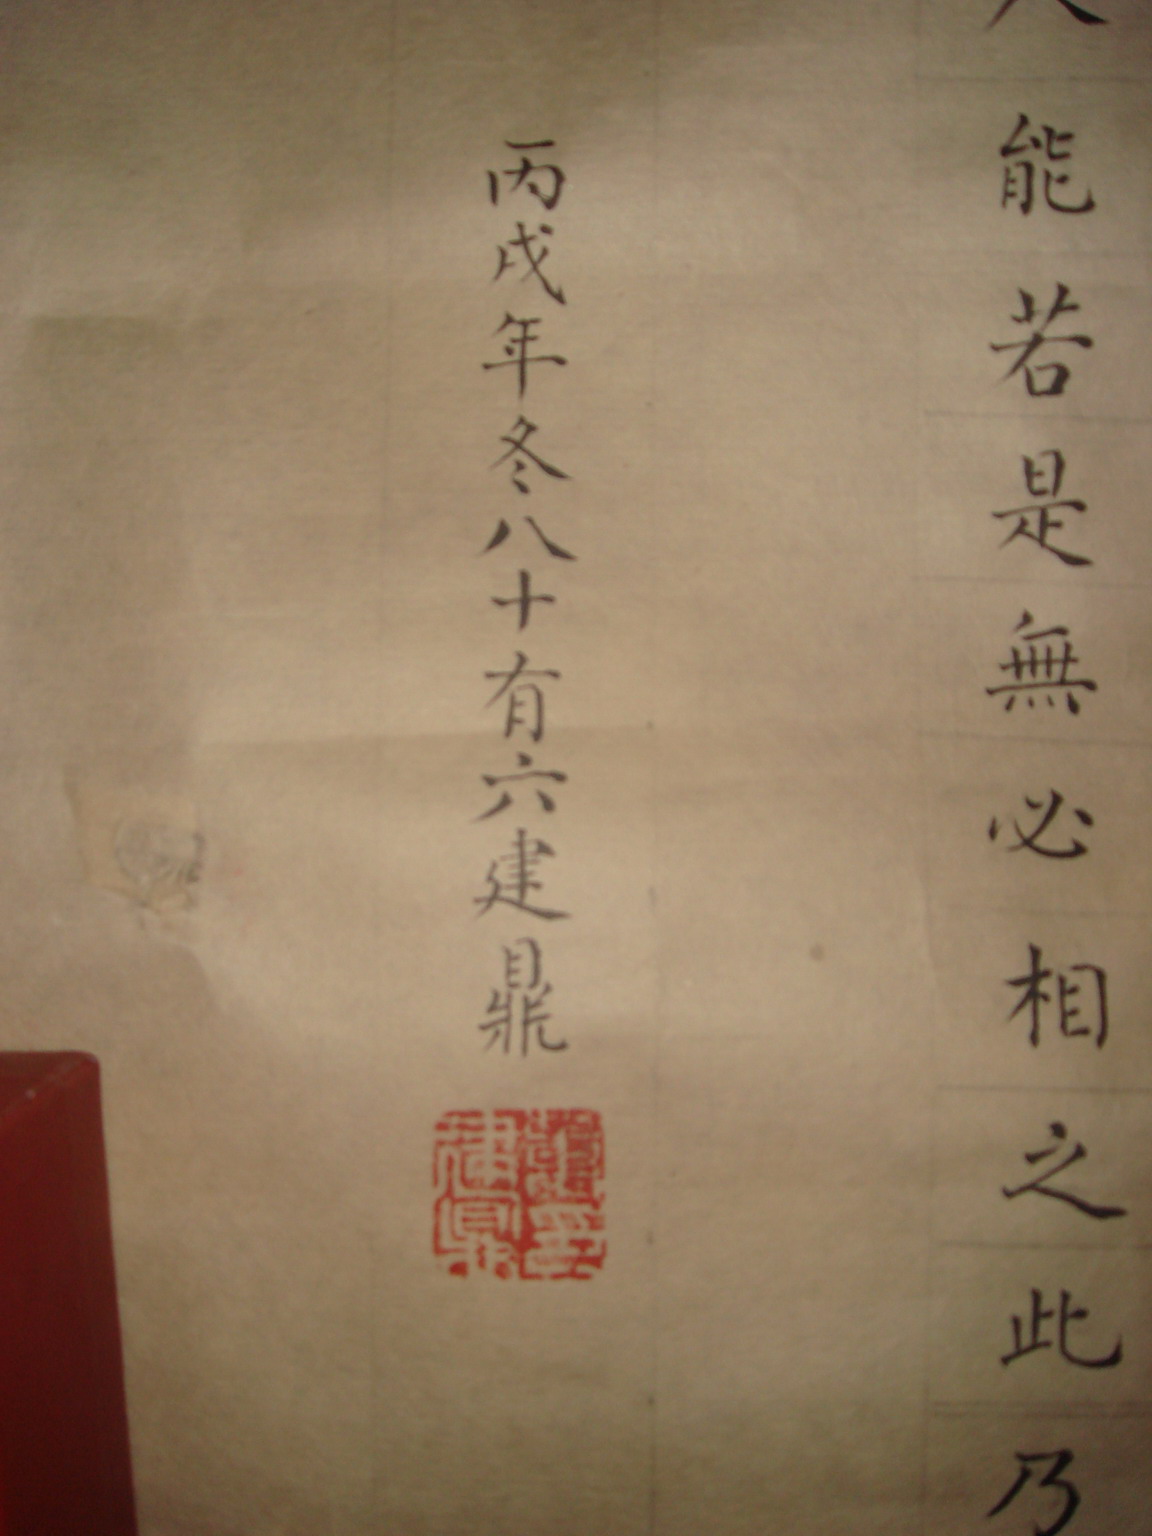 能若是無必相之此乃
丙戌年冬八十有六建鼎